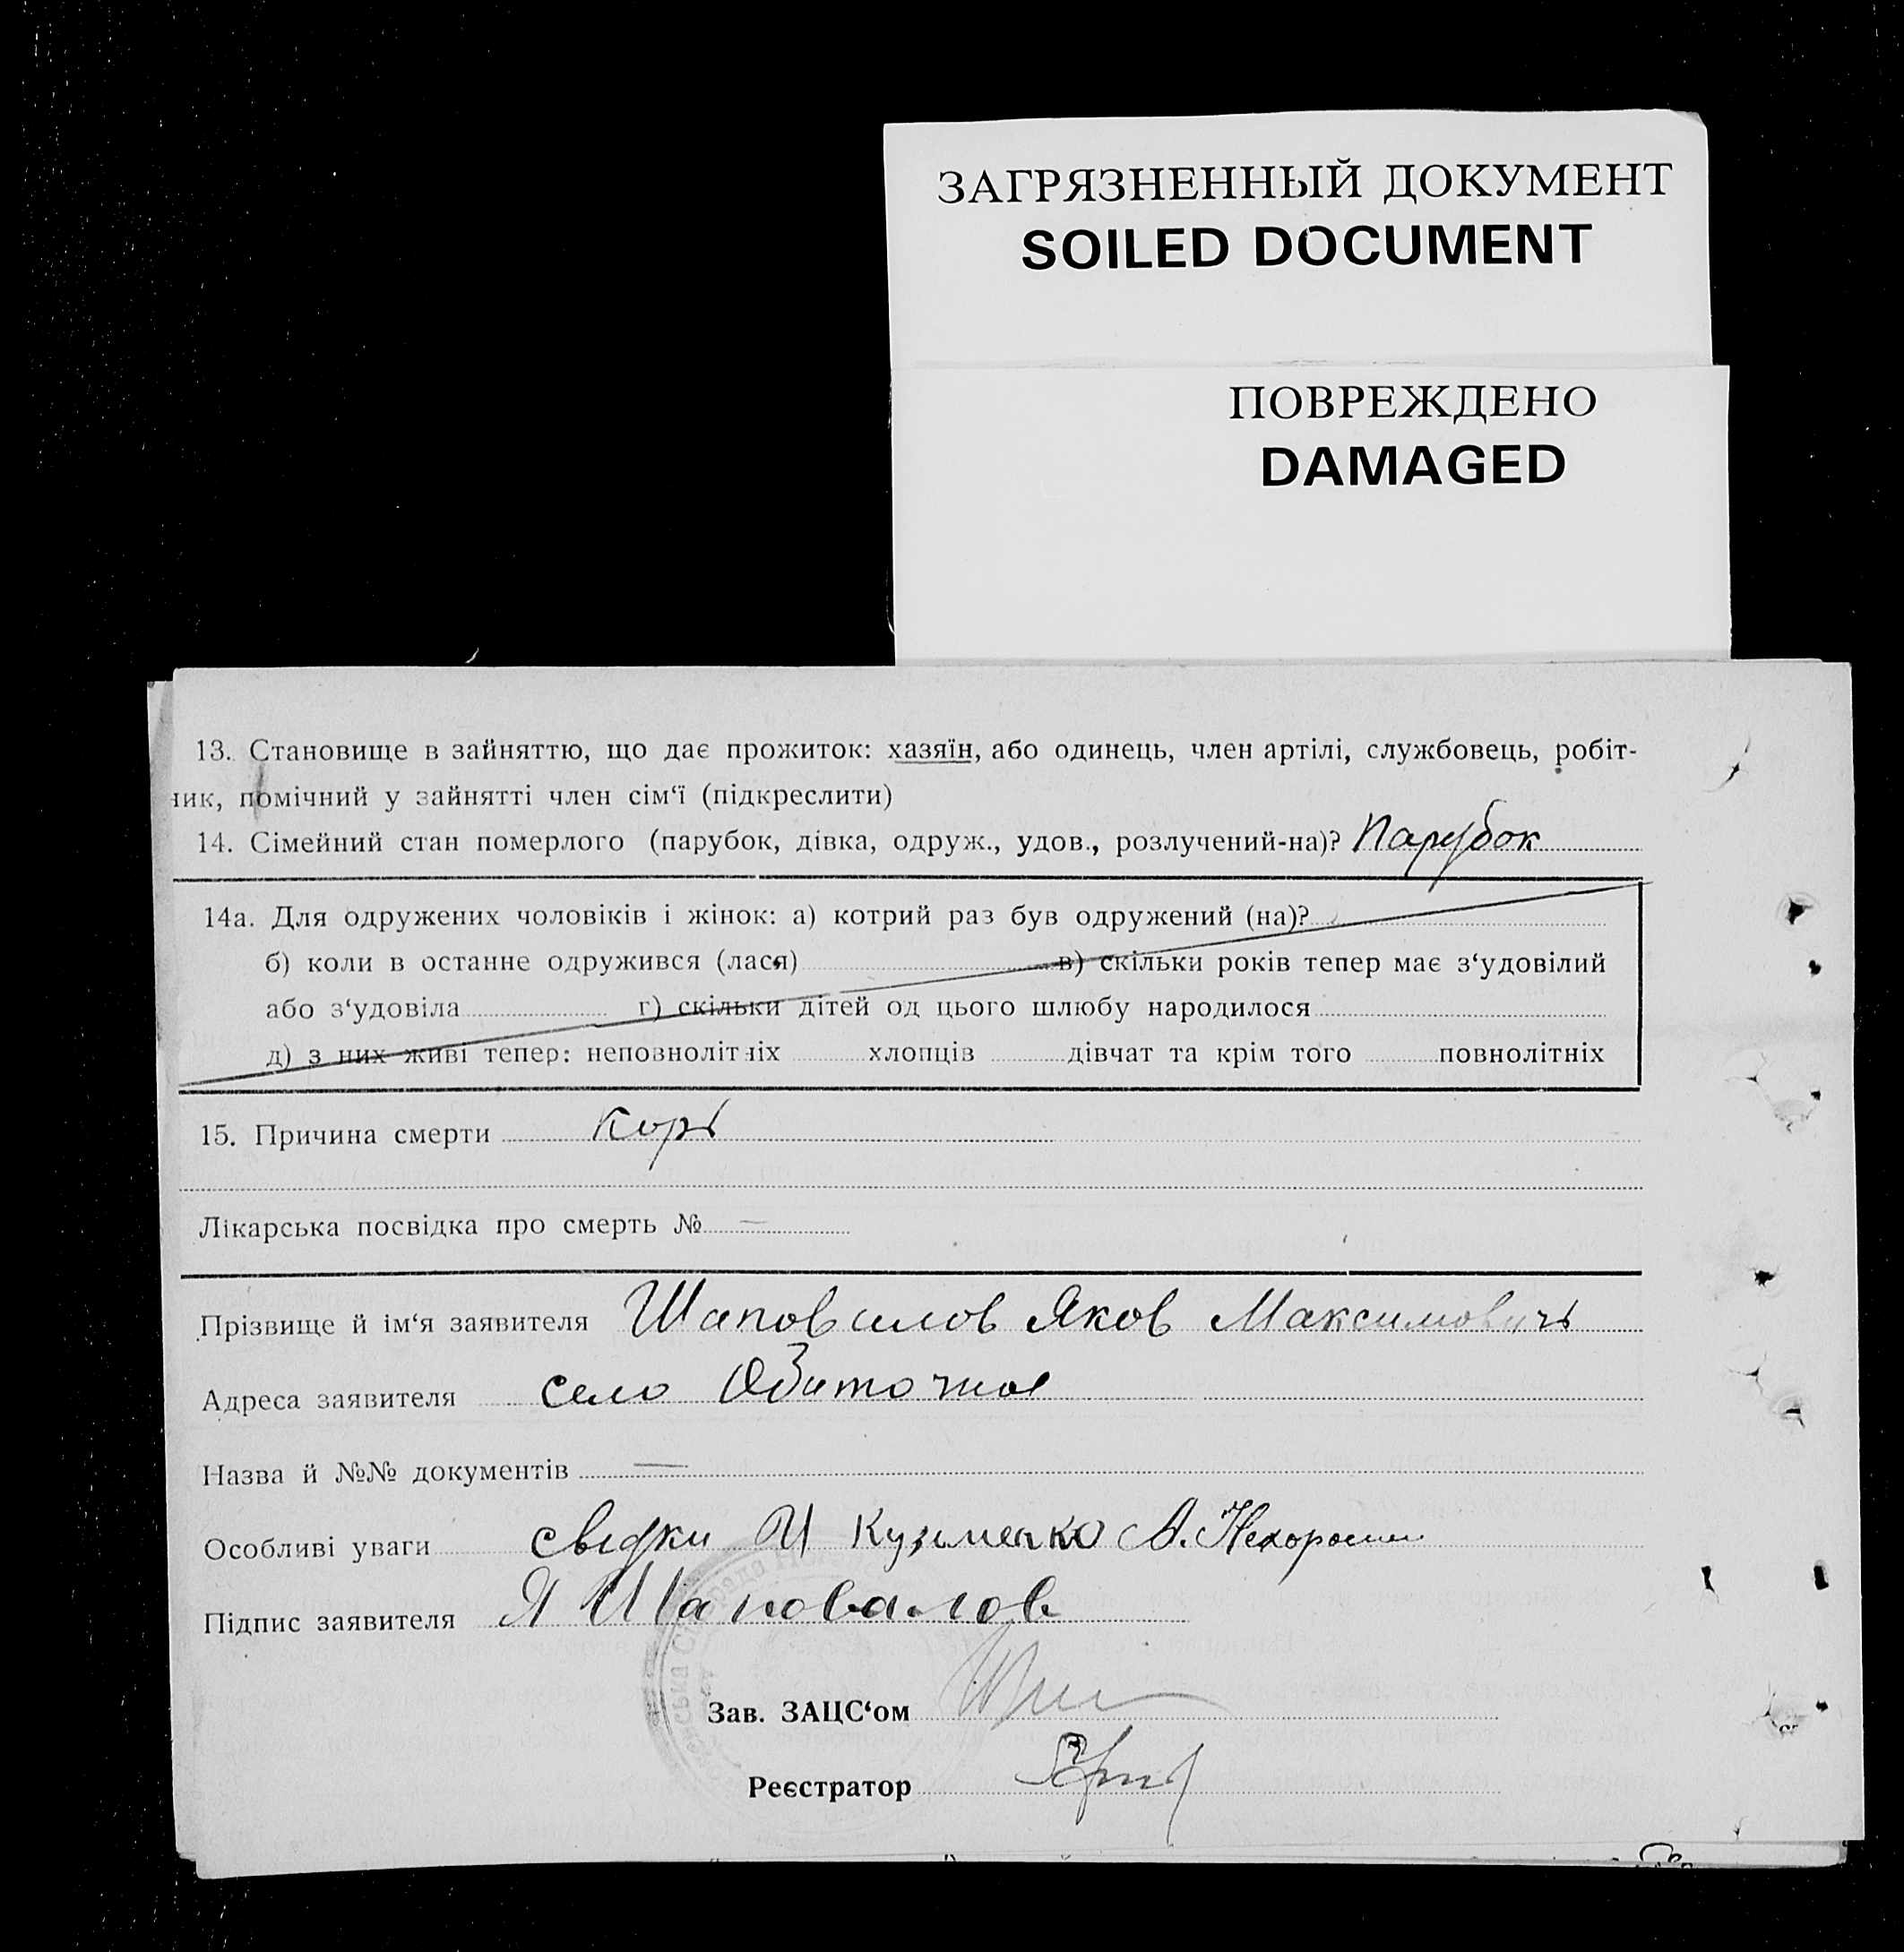 ЗАГРЯЗНЕННЫЙ ДОКУМЕНТ
SOILED DOCUMENT
ПОВРЕЖДЕНО
DAMAGED
13. Становище в зайняттю, що дає прожиток: хазяїн, або одинець, член артілі, службовець, робіт-
ник, помічний у зайнятті член сім‘ї (підкреслити)
14. Сімейний стан померлого (парубок, дівка, одруж., удов., розлучений-на)? Парубок
14а. Для одружених чоловіків і жінок: а) котрий раз був одружений (на)?
б) коли в останне одружився (лася) в) скільки років тепер має з‘удовілий
або з‘удовіла г) скільки дітей од цього шлюбу народилося
д) з них живі тепер: неповнолітніх хлопців дівчат та крім того повнолітніх
15. Причина смерти Корь
Лікарська посвідка про смерть № —
Прізвище й ім‘я заявителя Шаповалов Яков Максимовичь
Адреса заявителя село Обиточное
Назва й №№ документів —
Особливі уваги свідки И Кузьменко А. Нехороши
Підпис заявителя Я Шаповалов
Зав. ЗАЦС‘ом
Реєстратор